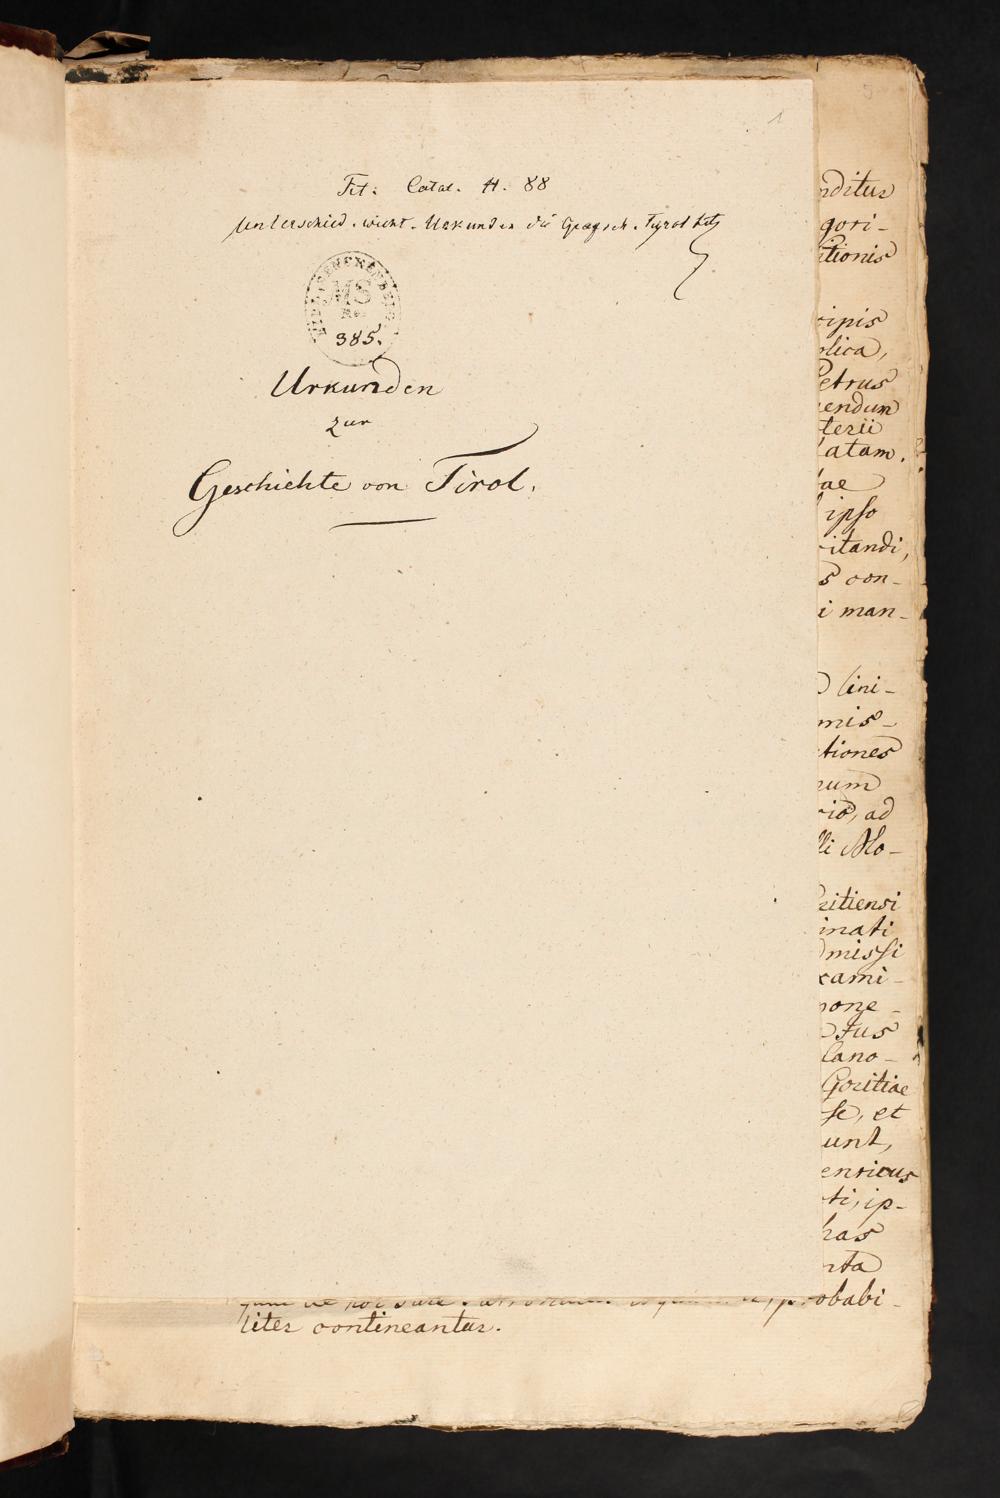 1
Tit: Catal. H. 88
Unterschied. wicht. Urkunden die Grafsch. Tyrol
MS
No.
385.
Urkunden
zur
Geschichte von Tirol.
5
nditur
gori-
itionis
cipis
olica,
Petrus
endum
terii
latam.
ae
ipso
itandi,
s con-
i man-
lini-
mis-
tiones
num
rio, ad
lli Mo-
ritiensi
inati
missi
cami-
pone-
tus
lano-
Goritiae
se, et
unt,
enricus
ti, ip-
has
rta
probabi-
liter contineantur.